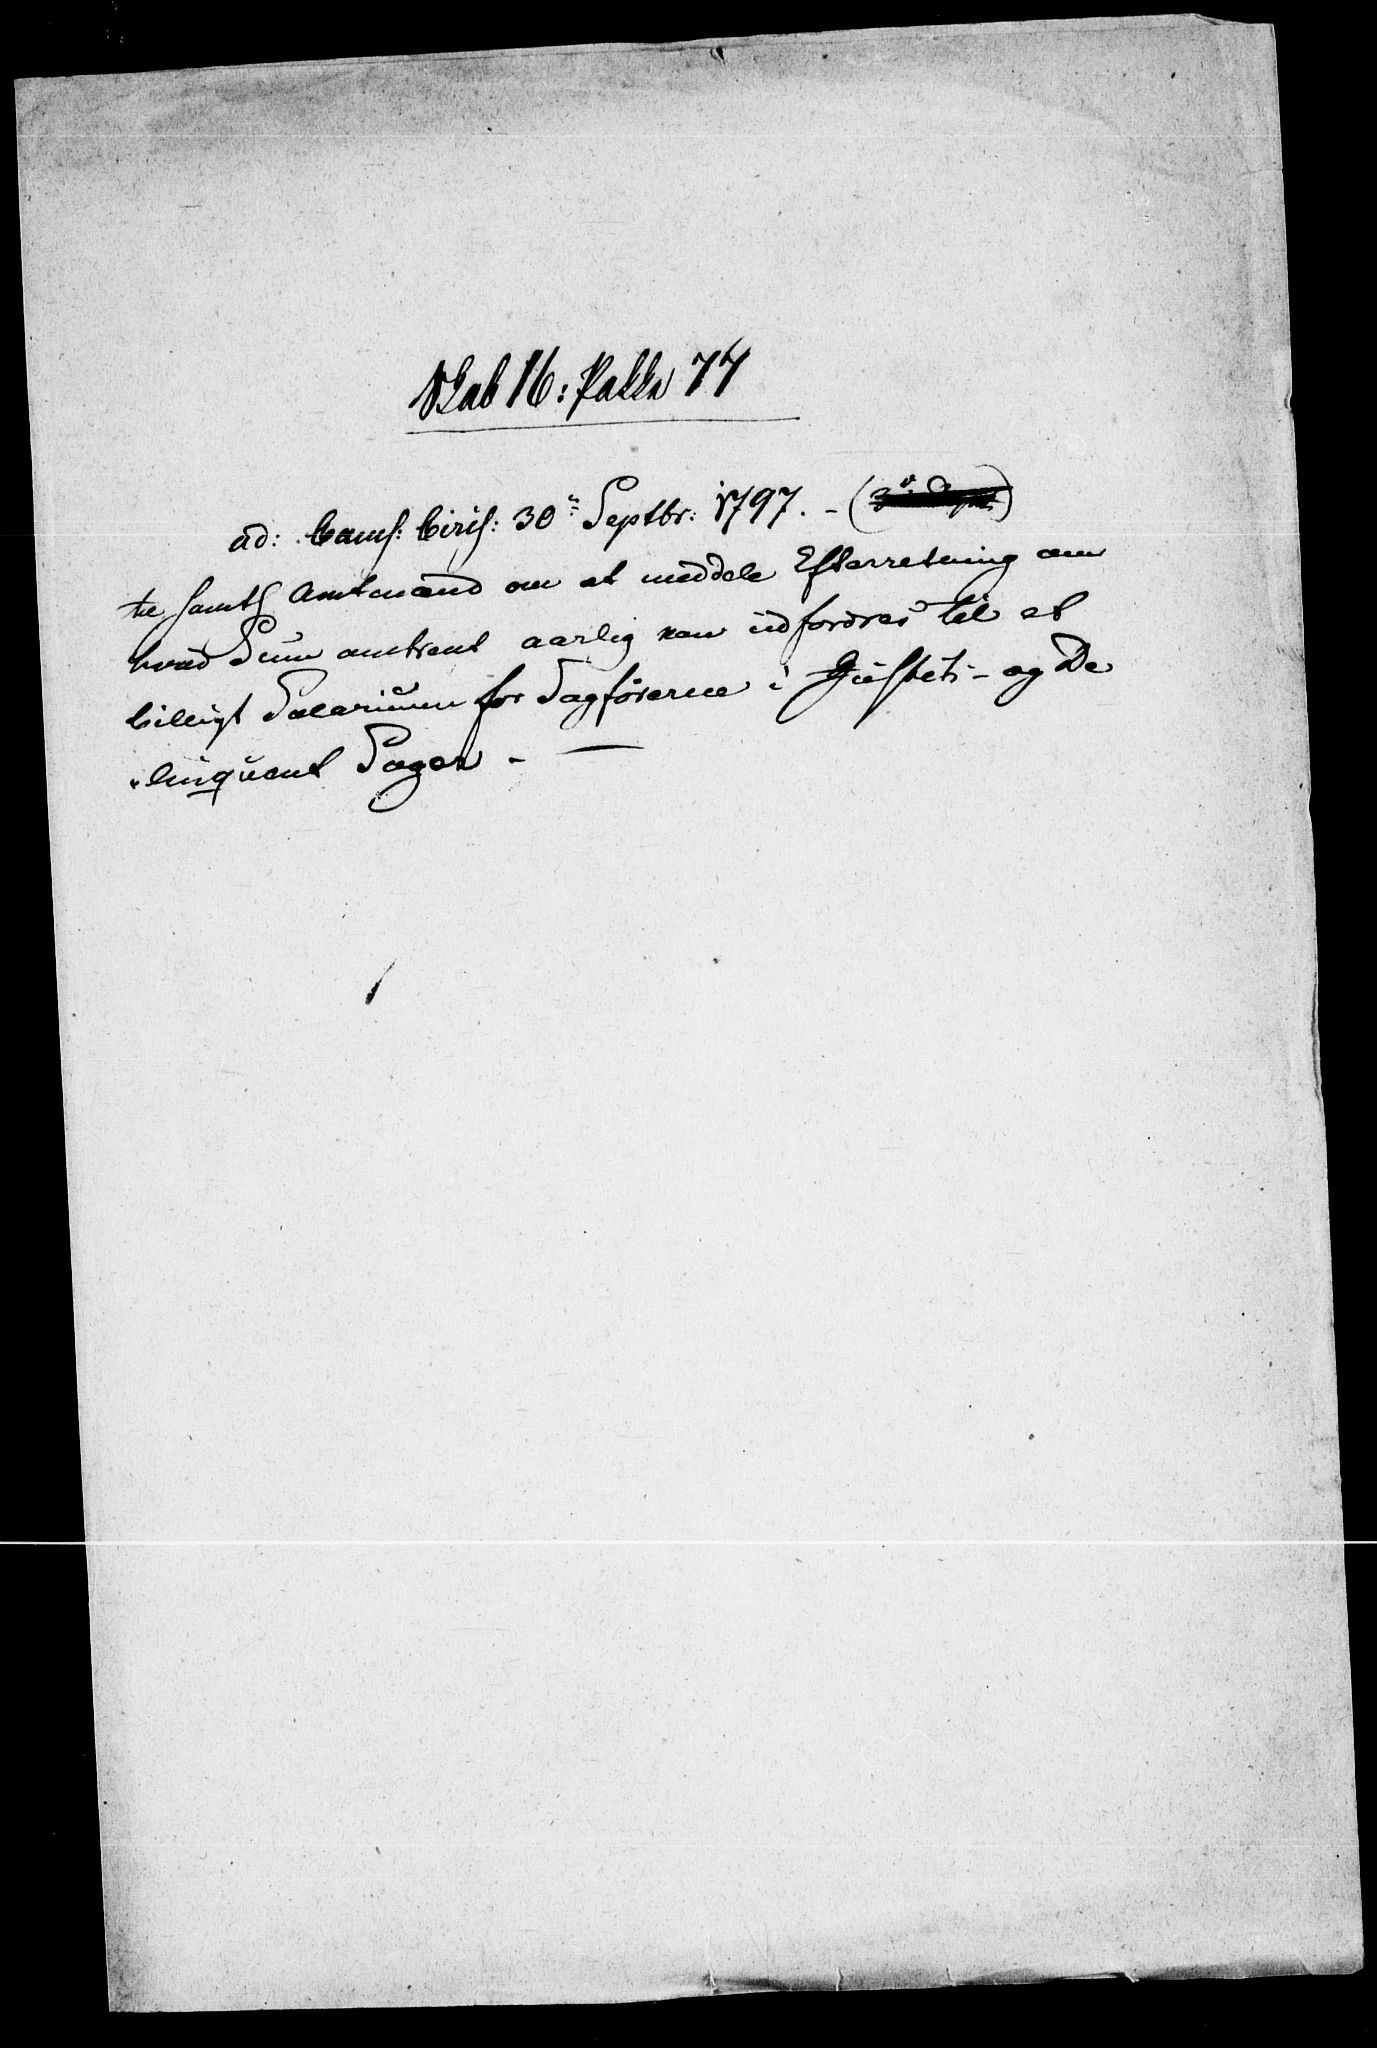 Skab 16: Pakke 77
ad: Cancs: Circ: 30te Septbr: 1797. - (3die Depart)
til samtl Amtmænd om at meddele Efterretning om
hvad Sum omtrent aarlig kan udfordres til et
billigt Salarium for Sagførerne i Justits- og De
linquent Sager. -